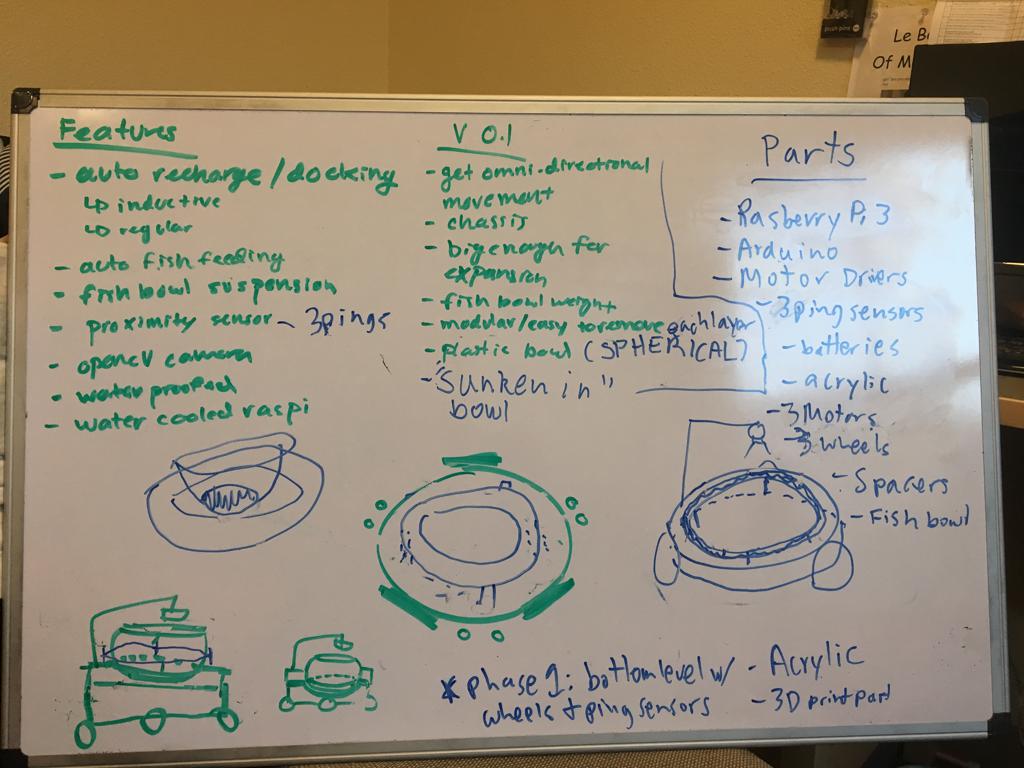 Le B
Of M
Features
- auto recharge/docking
↳ inductive
↳ regular
- auto fish feeding
- fish bowl suspension
- proximity sensor - 3pings
- opencv camera
- water proofed
- water cooled raspi
V 0.1
- get omni-directional
movement
- chassis
- big enough for
expansion
- fish bowl weight
- modular/easy to remove each layer
- plastic bowl (SPHERICAL)
- "Sunken in"
bowl
Parts
- Rasberry Pi 3
- Arduino
- Motor Drivers
- 3ping sensors
- batteries
- acrylic
- 3 Motors
- 3 wheels
- Spacers
- Fish bowl
* phase 1: bottom level w/
wheels + ping sensors
- Acrylic
- 3D print part